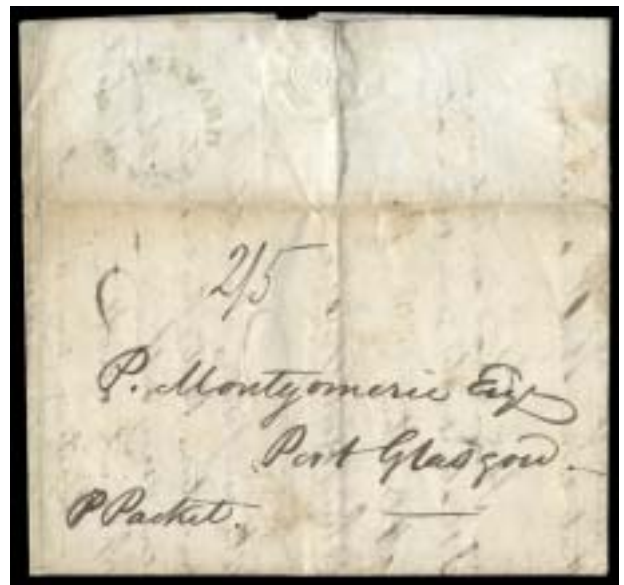 LEEWARD
2/5
P. Montgomerie Esqr
Port Glasgow.
P Packet.